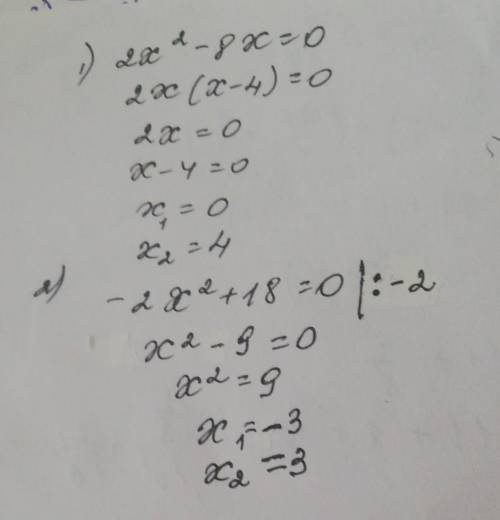 1) 2x² - 8x = 0
2x(x-4) = 0
2x = 0
x - 4 = 0
x₁ = 0
x₂ = 4
2) -2x² + 18 = 0 | : -2
x² - 9 = 0
x² = 9
x₁ = -3
x₂ = 3